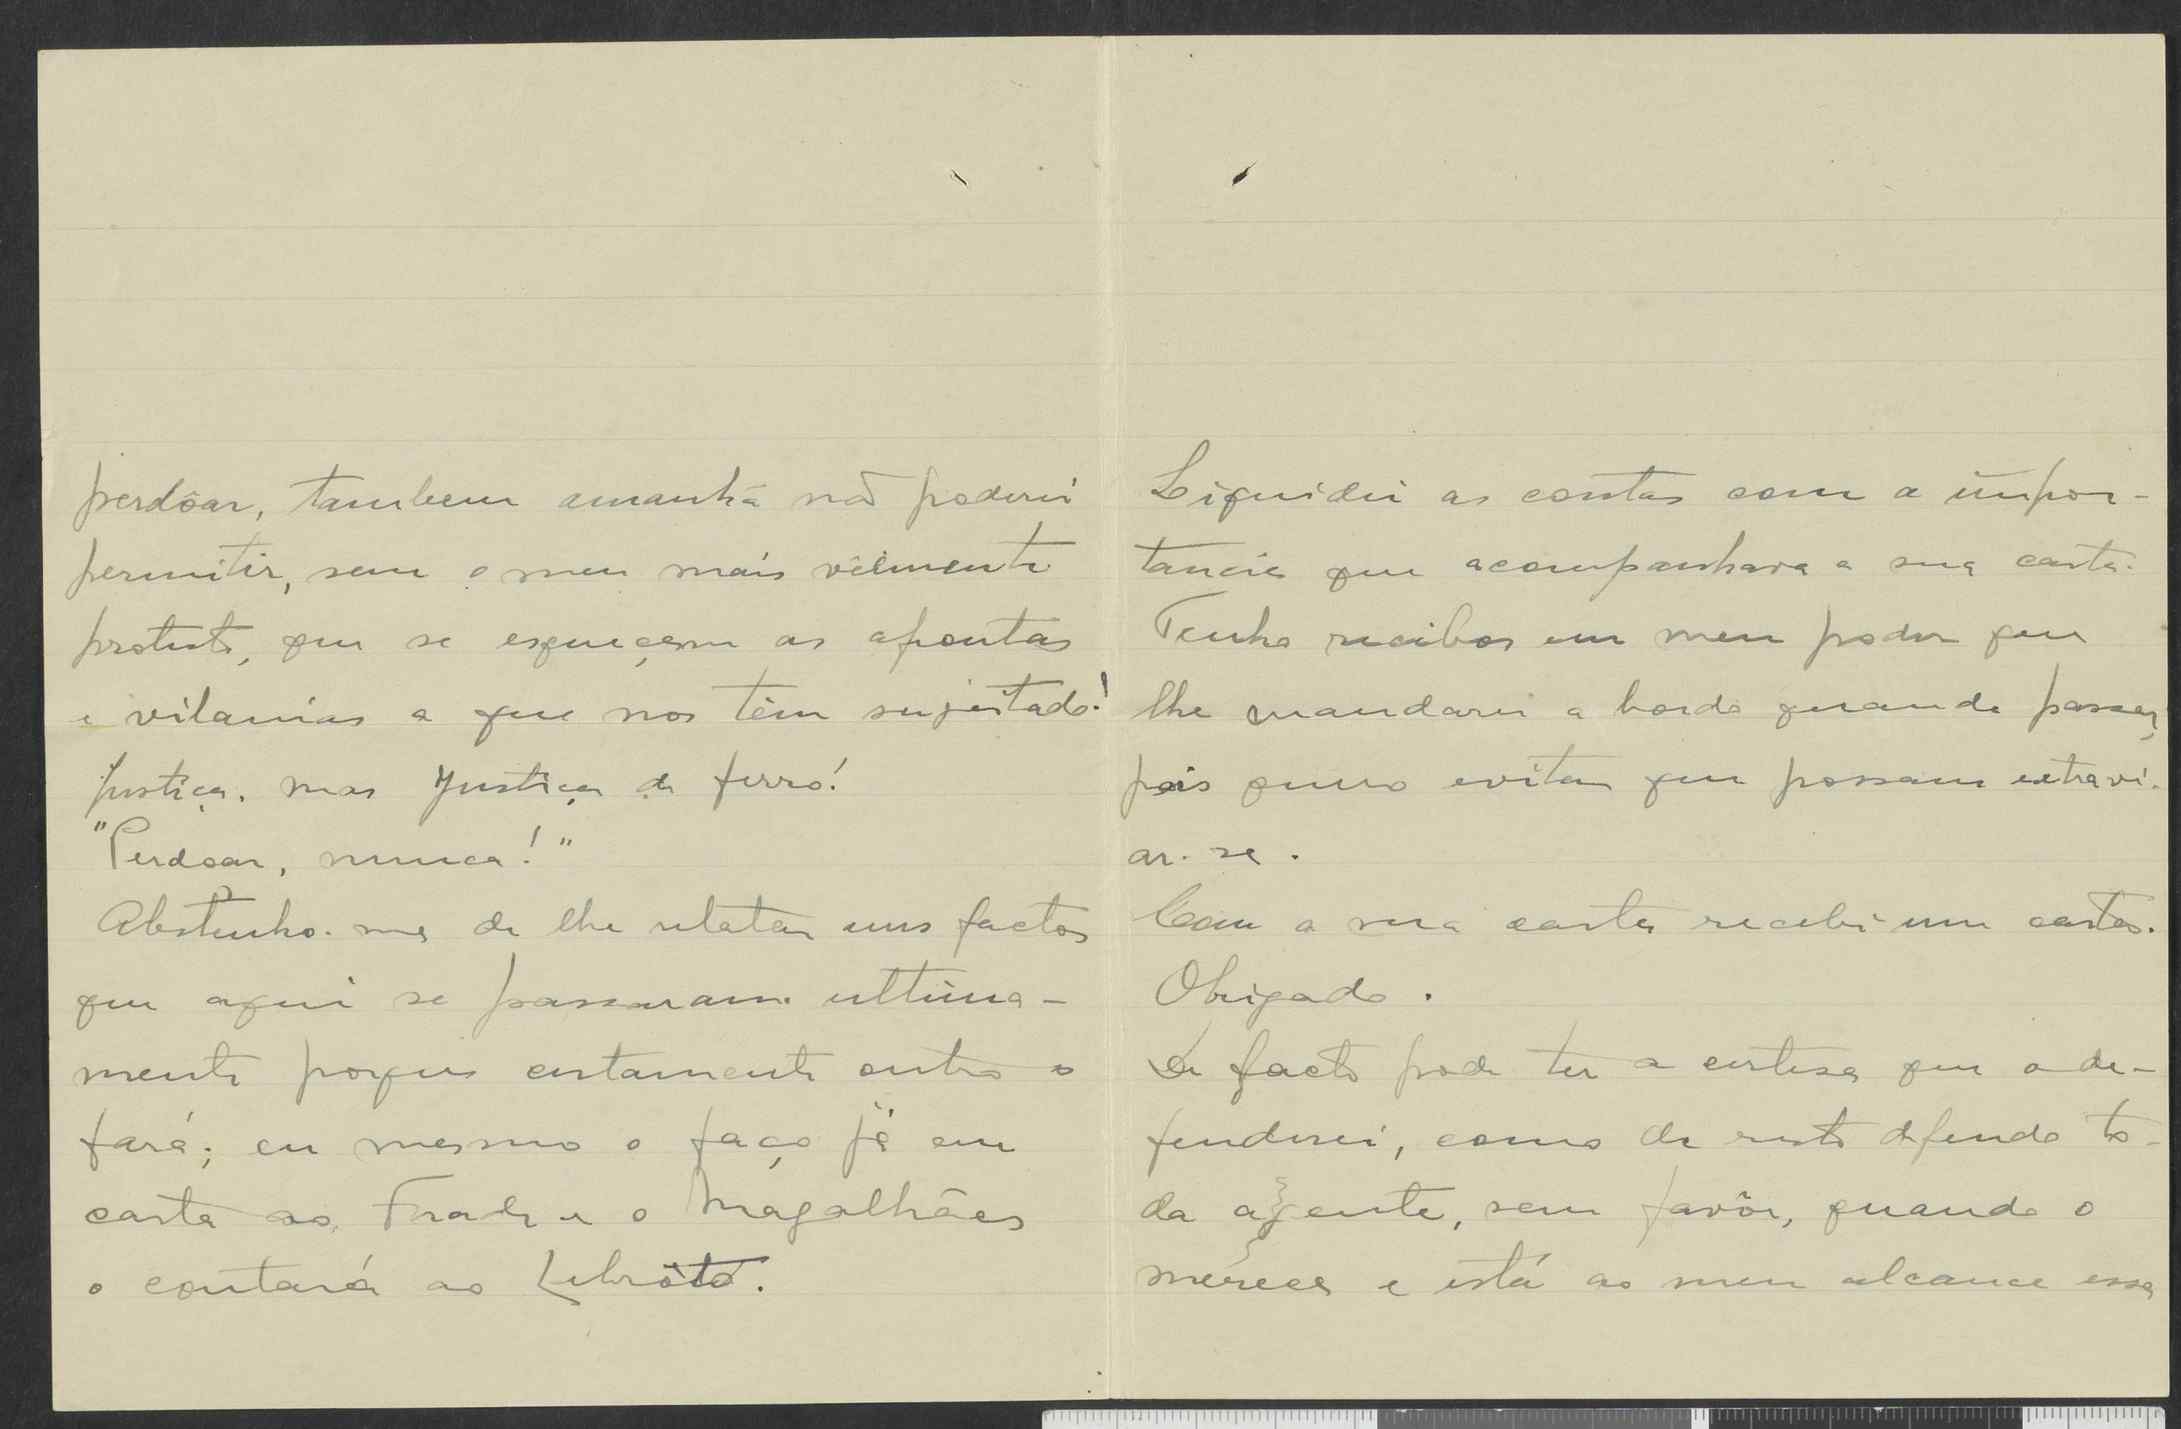 perdôar, tambem amanhã não poderei
permitir, sem o meu mais vêemente
protesto, que se esqueçam as afrontas
e vilanias a que nos têm sujeitado!
Justiça, mas Justiça de ferro!
"Perdoar, nunca!"
Abstenho-me de lhe relatar uns factos
que aqui se passaram ultima-
mente porque certamente outro o
fará; eu mesmo o faço já em
carta ao Frade e o Magalhães
o contará ao
Liquidei as contas com a impor-
tancia que acompanhava a sua carta.
Tenho recibos em meu poder que
lhe mandarei a bordo quando passar,
pois quero evitar que possam extravi-
ar-se.
Com a sua carta recebi um cartão.
Obrigado.
De facto pode ter a certesa que o de-
fenderei, como de resto defendo to-
da a gente, sem favôr, quando o
merece e está ao meu alcance essa